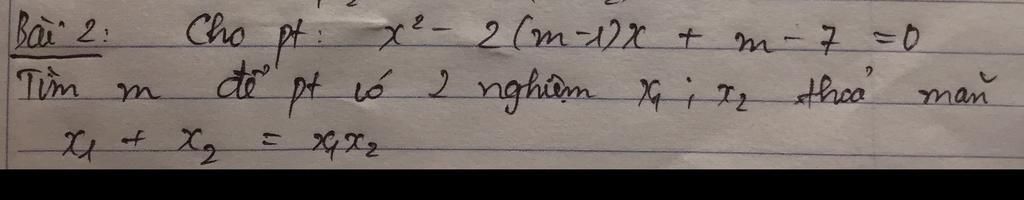 Bài 2: Cho pt: x² - 2(m-1)x + m - 7 = 0
Tìm m để pt có 2 nghiệm x₁ ; x₂ thoả mãn
x₁ + x₂ = x₁x₂